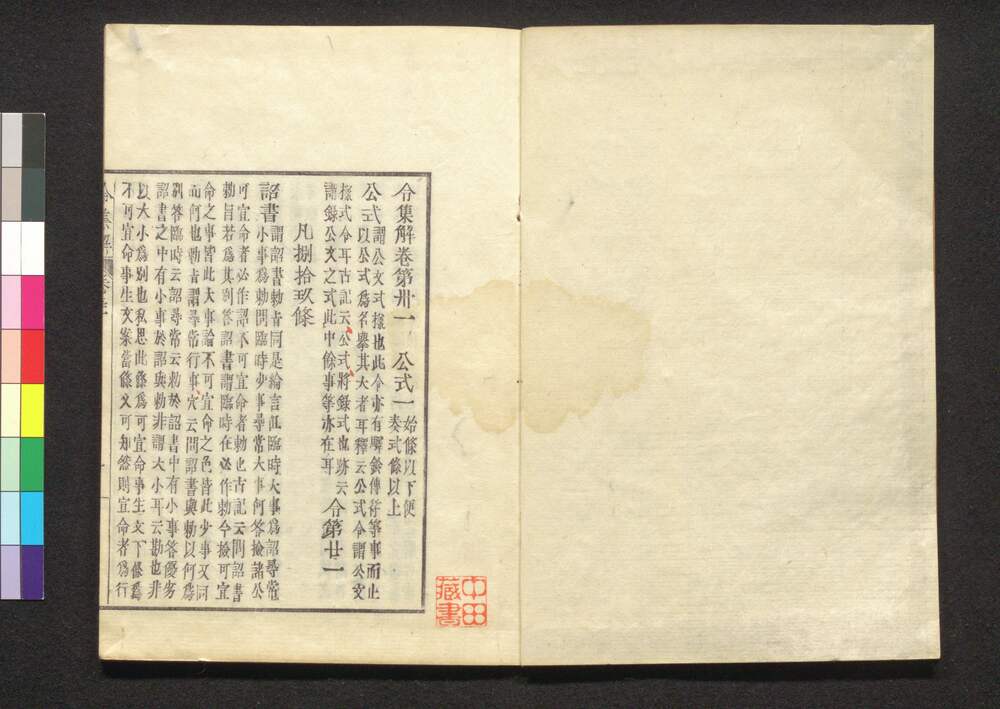 令集解卷第卅一　公式一 始條以下便
奏式條以上
公式 謂公文式樣也此令亦有驛鈴傳符等事而止
以公式爲名擧其大者耳釋云公式令謂公文
樣式令耳古記云公式將錄式也跡云
謂錄公文之式此中餘事等亦在耳 令第廿一
凡捌拾玖條
詔書 謂詔書勅旨同是綸言但臨時大事爲詔尋常
小事爲勅問臨時少事尋常大事何答檢諸公
可宣命者必作詔不可宣命者勅也古記云問詔書
勅旨若爲其別答詔書謂臨時在必作勅今檢可宣
命之事皆此大事論不可宣命之色皆此少事又問
而何也勅旨謂尋常行事穴云問詔書與勅以何爲
別答臨時云詔尋常云勅於詔書中有小事答優劣
詔書之中有小事於詔與勅非謂大小耳云勘也非
以大小爲別也私思此條爲可宣命事生文下條爲
不可宣命事生文案當條文可知然則宣命者爲行
中田
藏書